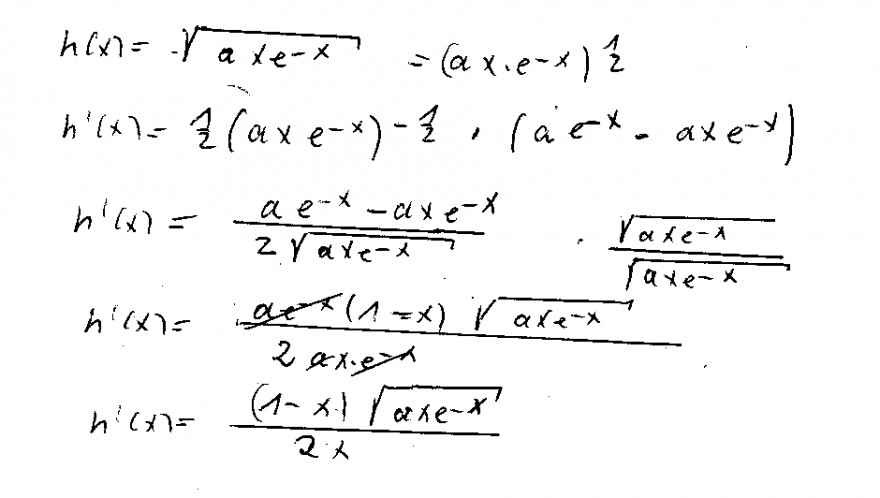 h(x) = √(a x e^-x) = (a x · e^-x)^½
h'(x) = ½ (a x e^-x)^-½ · (a e^-x - a x e^-x)
h'(x) = (a e^-x - a x e^-x) / (2 √(a x e^-x)) · √(a x e^-x) / √(a x e^-x)
h'(x) = a e^-x (1 - x) √(a x e^-x) / (2 a x · e^-x)
h'(x) = (1 - x) √(a x e^-x) / (2 x)